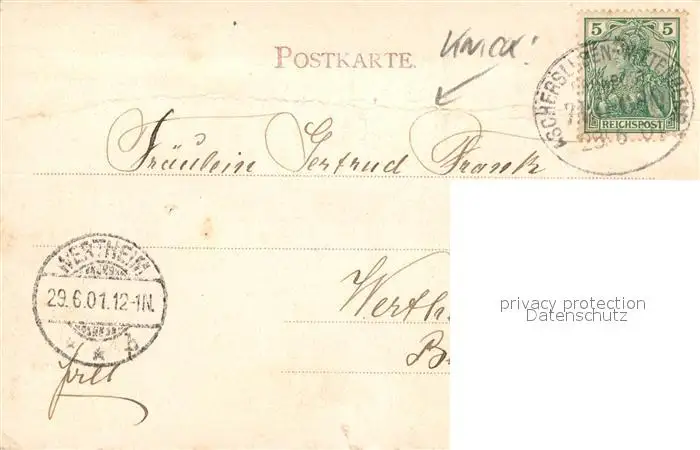 POSTKARTE.
Knick!
5 5
REICHSPOST
ASCHERSLEBEN-
Fräulein Gertrud Frank
WERTHEIM
29.6.01.12-1N.
b
Werth
B
frei
privacy protection
Datenschutz